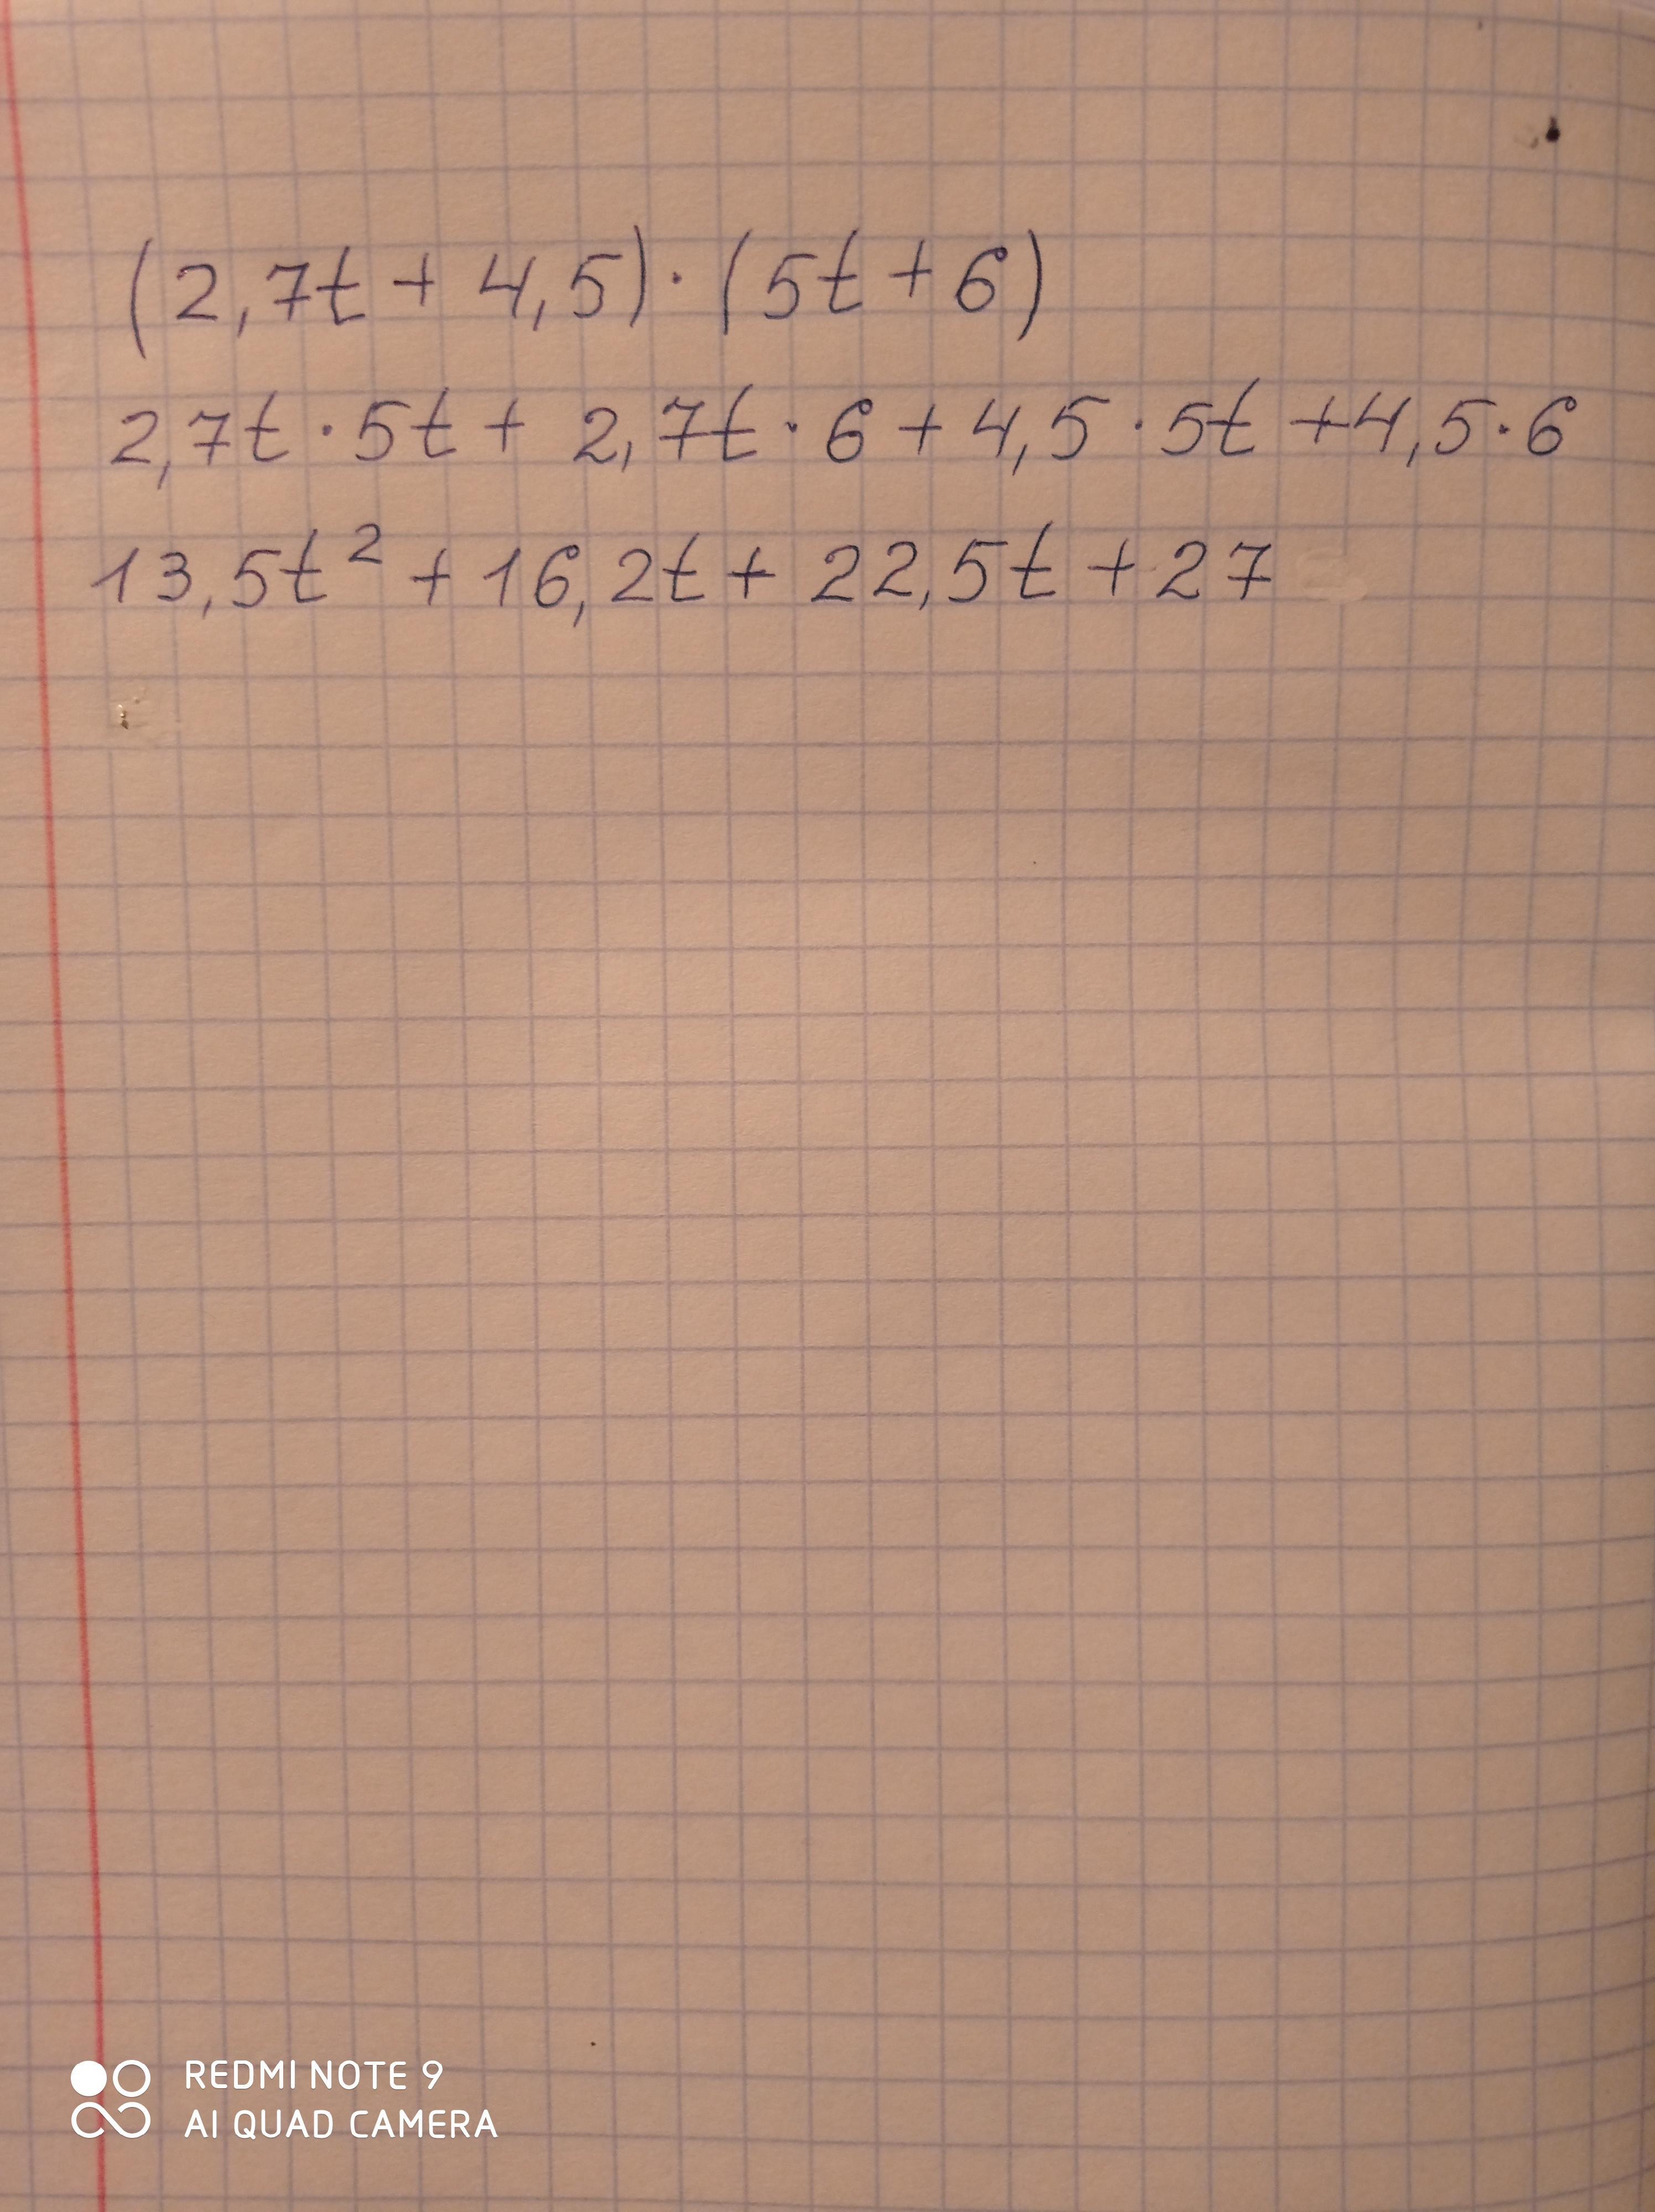 (2,7t + 4,5) · (5t + 6)
2,7t · 5t + 2,7t · 6 + 4,5 · 5t + 4,5 · 6
13,5t² + 16,2t + 22,5t + 27
REDMI NOTE 9
AI QUAD CAMERA